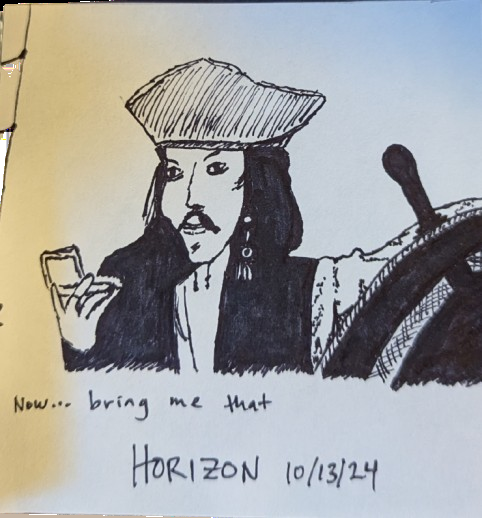 Now... bring me that
HORIZON 10/13/24